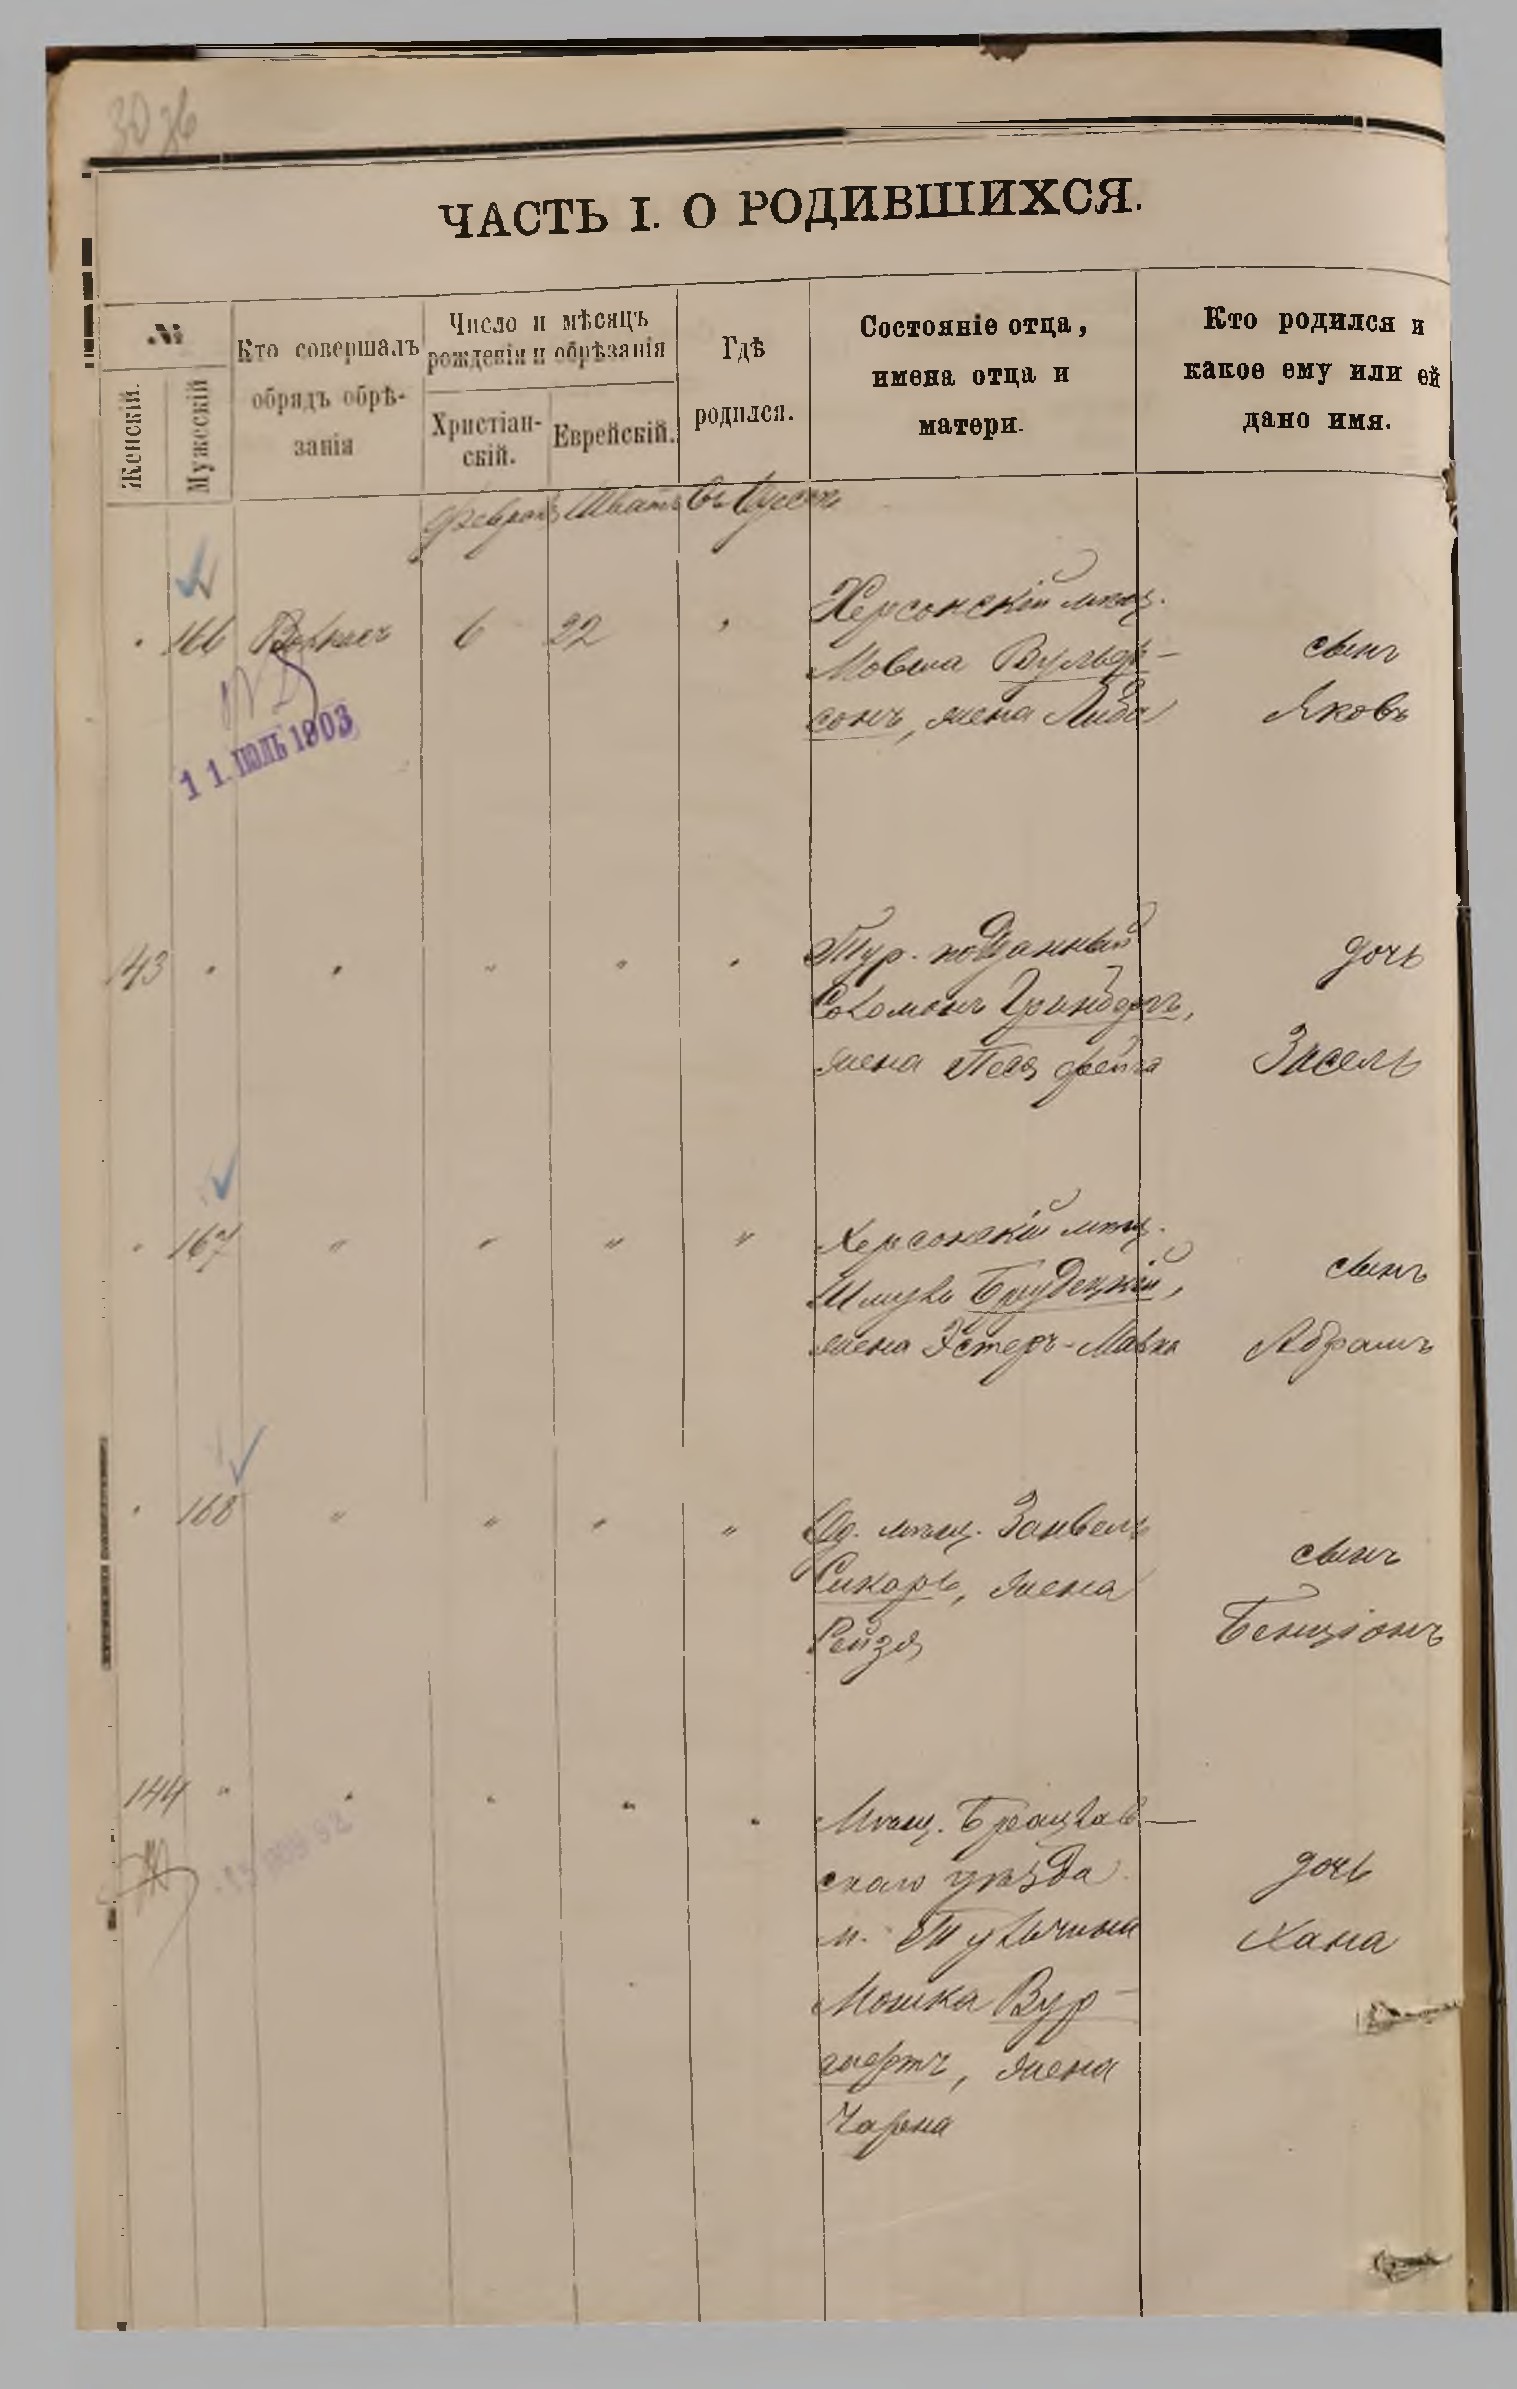 ЧАСТЬ I. О РОДИВШИХСЯ.
№
Женскій.
Мужескій
Кто совершалъ
обрядъ обрѣ-
занія
Число и мѣсяцъ
рожденія и обрѣзанія
Христіан-
скій.
Еврейскій.
Гдѣ
родился.
Состояніе отца,
имена отца и
матери.
Кто родился и
какое ему или ей
дано имя.
Шватъ Въ Одессѣ
166 6 22
Херсонскій мѣщ.
Мовша Вульф-
сонъ, жена Либа
сынъ
Яковъ
11 ІЮЛЬ 1903
143
Тур. подданный
Соломонъ Гринбергъ,
жена Песя Фейга
дочь
Зисель
167
Херсонскій мѣщ.
Шмуль Брудецкій,
жена Эстеръ-Малка
сынъ
Абрамъ
168
Од. мѣщ. Занвель
Сикаръ, жена
Рейзя
сынъ
Бенціонъ
144
Мѣщ. Брацлав-
скаго уѣзда
м. Тульчина
Мошка Вур-
гафтъ, жена
Чарна
дочь
Хана